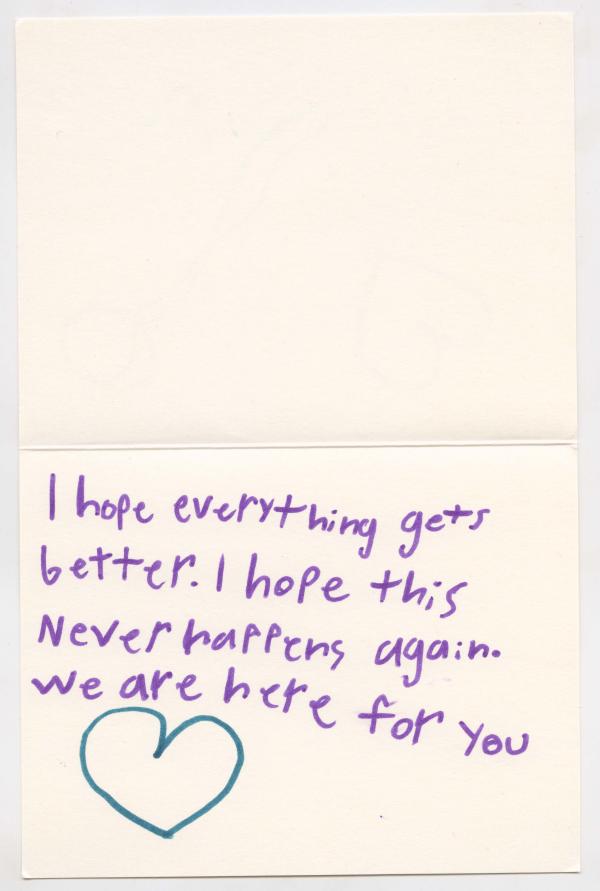 I hope everything gets
better. I hope this
Never happens again.
We are here for you